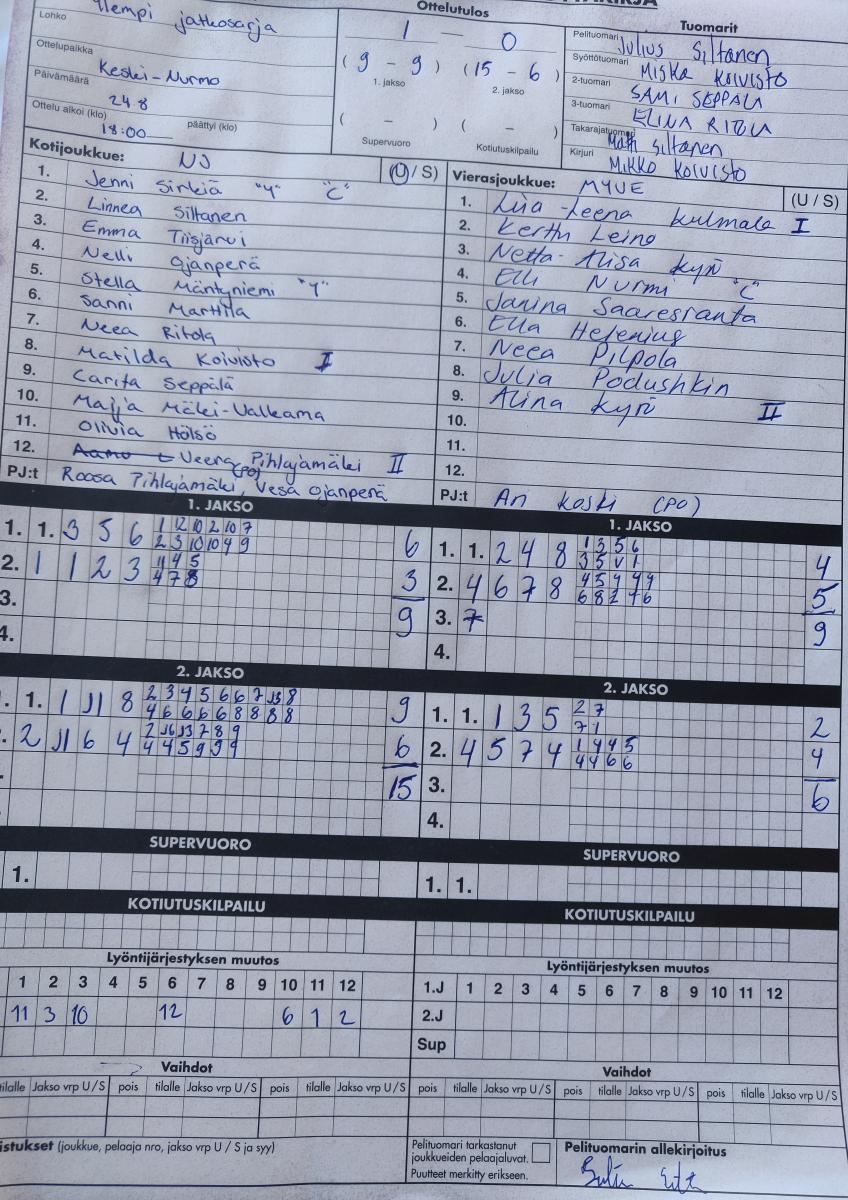 Ottelutulos
Lohko Ylempi jatkosarja
1 — 0
Tuomarit
Pelituomari Julius Siltanen
Ottelupaikka Keski-Nurmo
( 9 - 9 ) (15 - 6 )
Syöttötuomari Miska Koivisto
1. jakso 2. jakso
2-tuomari SAMI SEPPÄLÄ
Päivämäärä 24.8
3-tuomari ELINA RITOLA
Ottelu alkoi (klo) 18:00 päättyi (klo)
( - ) ( - )
Takarajatuomari Matti Siltanen
Supervuoro Kotiutuskilpailu
Kirjuri Mikko Koivisto
Kotijoukkue: NJ (U / S)
1. Jenni Sinkiä "Y" "C"
2. Linnea Siltanen
3. Emma Tiisjärvi
4. Nelli Ojanperä
5. Stella Mäntyniemi "Y"
6. Sanni Marttila
7. Neea Ritola
8. Matilda Koivisto I
9. Carita Seppälä
10. Maija Mäki-Valkama
11. Olivia Hölsö
12. Veera Pihlajamäki II
PJ:t Roosa Pihlajamäki (PO), Vesa Ojanperä
Vierasjoukkue: MYVE (U / S)
1. Liia-Leena Kulmala I
2. Kerttu Leino
3. Netta-Alisa Kyrö
4. Elli Nurmi "C"
5. Janina Saaresranta
6. Ella Helenius
7. Neea Pilpola
8. Julia Podushkin
9. Alina Kyrö II
10.
11.
12.
PJ:t Ari Koski (PO)
1. JAKSO
1. 1. 3 5 6 1 12 10 2 10 7 6
2 3 10 10 4 9
2. 1 1 2 3 11 4 5 3
4 7 8
3. 9
4.
1. JAKSO
1. 1. 2 4 8 1 3 5 6 4
3 5 V 1
2. 4 6 7 8 5
3. 7 9
4.
2. JAKSO
1. 1 11 8 2 3 4 5 6 6 7 8 9
4 6 6 6 6 8 8 8 8
2 11 6 4 7 8 9 6
4 4 5 9 9 9
15
2. JAKSO
1. 1. 1 3 5 2 7 2
7 1
2. 4 5 7 4 1 4 4 5 4
4 4 6 6
3. 6
4.
SUPERVUORO
1.
SUPERVUORO
1. 1.
KOTIUTUSKILPAILU
KOTIUTUSKILPAILU
Lyöntijärjestyksen muutos
1 2 3 4 5 6 7 8 9 10 11 12
11 3 10 12 6 1 2
Lyöntijärjestyksen muutos
1.J 1 2 3 4 5 6 7 8 9 10 11 12
2.J
Sup
Vaihdot
tilalle Jakso vrp U / S pois tilalle Jakso vrp U / S pois tilalle Jakso vrp U / S
Vaihdot
pois tilalle Jakso vrp U / S pois tilalle Jakso vrp U / S pois tilalle Jakso vrp U / S
istukset (joukkue, pelaaja nro, jakso vrp U / S ja syy)
Pelituomari tarkastanut
joukkueiden pelaajaluvat.
Puutteet merkitty erikseen.
Pelituomarin allekirjoitus